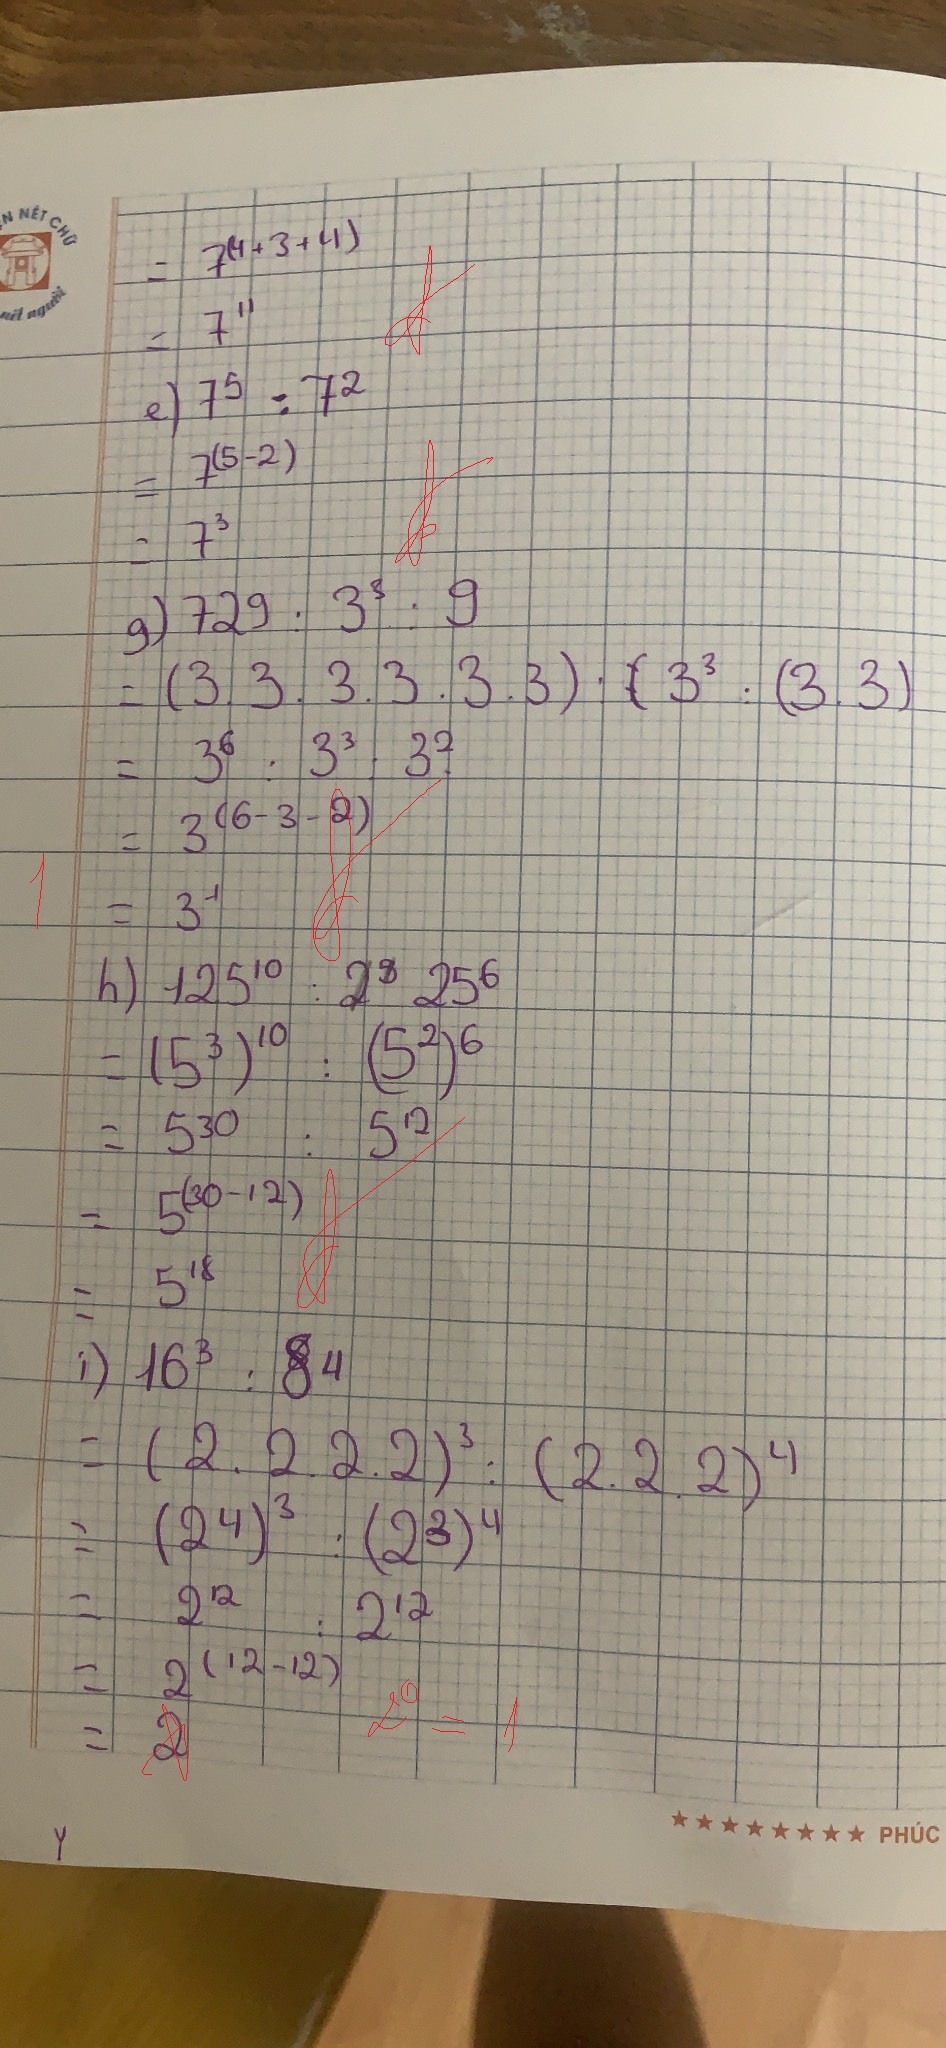 ỆN NẾT CHỮ
nết người
= 7^(4+3+4)
= 7^11
e) 7^5 : 7^2
= 7^(5-2)
= 7^3
g) 729 : 3^3 : 9
= (3.3.3.3.3.3) : (3^3 : (3.3)
= 3^6 : 3^3 : 3^2
= 3^(6-3-2)
1
= 3^1
h) 125^10 : 25^6
= (5^3)^10 : (5^2)^6
= 5^30 : 5^12
= 5^(30-12)
= 5^18
i) 16^3 : 8^4
= (2.2.2.2)^3 : (2.2.2)^4
= (2^4)^3 : (2^3)^4
= 2^12 : 2^12
= 2^(12-12)
= 2 2^0 = 1
Y
★★★★★★★★ PHÚC